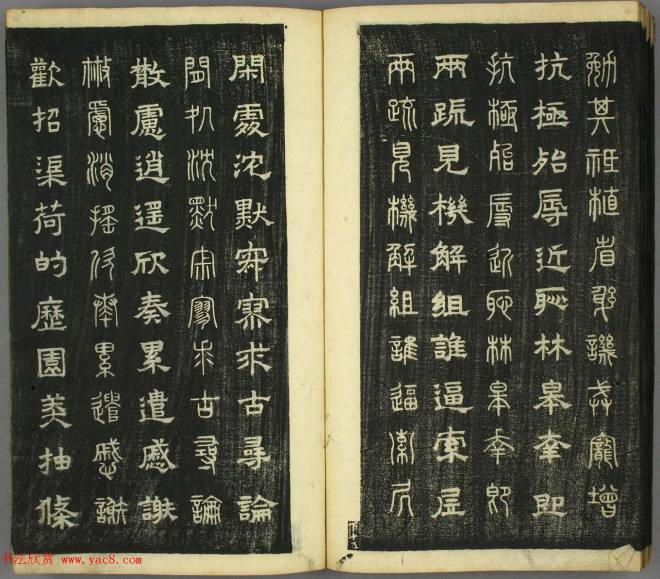 勉其祗植省躬譏誡寵增
抗極殆辱近恥林皋幸即
抗極殆辱近恥林皋幸即
兩疏見機解組誰逼索居
兩疏見機解組誰逼索居
閑處沈默寂寥求古尋論
閑處沈默寂寥求古尋論
散慮逍遙欣奏累遣慼謝
散慮逍遙欣奏累遣慼謝
歡招渠荷的歷園莽抽條
书法欣赏 www.yac8.com